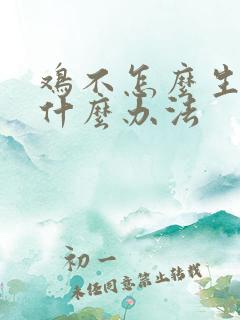 鸡不怎麼生
什麼办法
初一
未经同意禁止转载